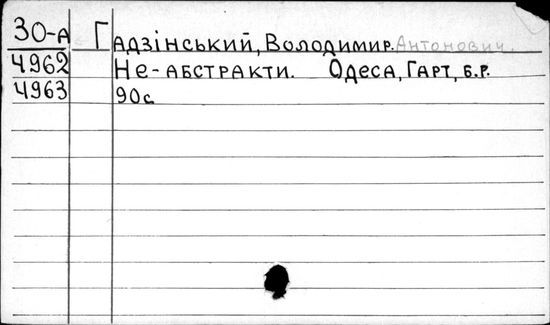 30-А Гадзінський, Володимир. Антонович.
4962 Не-абстракти. Одеса, Гарт, б.р.
4963 90с.